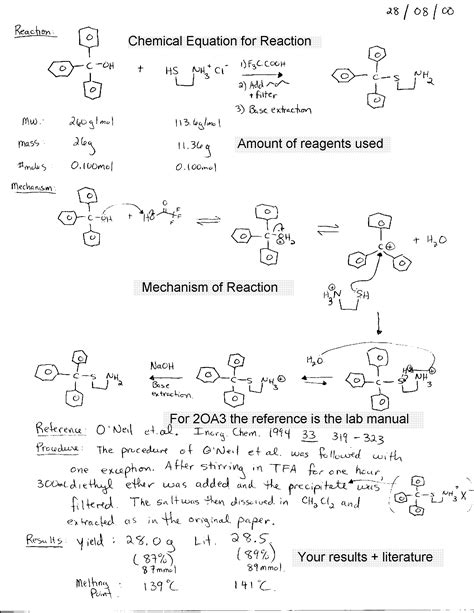 28/08/00
Reaction:
Chemical Equation for Reaction
C-OH + HS NH3+ Cl- 1) F3CCOOH C S NH2
2) Add
+ filter
3) Base extraction
MW: 260g/mol 113.6g/mol
mass: 26g 11.36g Amount of reagents used
#moles 0.100mol 0.100mol
Mechanism:
C-OH + HO O F F F C-OH2 C + H2O
Mechanism of Reaction
H3N SH
H2O
C-S NH2 NaOH C S NH3 C-S NH3
Base
extraction.
For 2OA3 the reference is the lab manual
Reference: O'Neil et al. Inorg. Chem. 1994 33 319-323
Procedure: The procedure of O'Neil et al. was followed with
one exception. After stirring in TFA for one hour,
300mL diethyl ether was added and the precipitate was C-S NH3+ X-
filtered. The salt was then dissolved in CH2Cl2 and
extracted as in the original paper.
Results: yield: 28.0g Lit. 28.5
(87%) (89%) Your results + literature
87mmol 89mmol
Melting 139°C 141°C
Point: